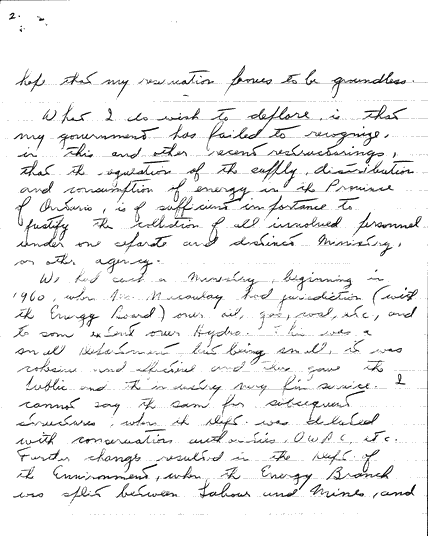 2.
hope that my reservation proves to be groundless.
What I do wish to deplore, is that
my government has failed to recognize,
in this and other recent restructurings,
that the regulation of the supply, distribution
and consumption of energy in the Province
of Ontario, is of sufficient importance to
justify the collection of all involved personnel
under one separate and distinct Ministry,
or other agency.
We had such a Ministry, beginning in
1960, when Mr. Macaulay had jurisdiction (with
the Energy Board) over oil, gas, coal, etc, and
to some extent over Hydro. This was a
small Department but being small, it was
cohesive and efficient and thus gave the
public and the industry very fine service. I
cannot say the same for subsequent
structures, when the Dept. was diluted
with conservation authorities, OWRC, etc.
Further changes resulted in the Dept. of
the Environment, when the Energy Branch
was split between Labour and Mines, and